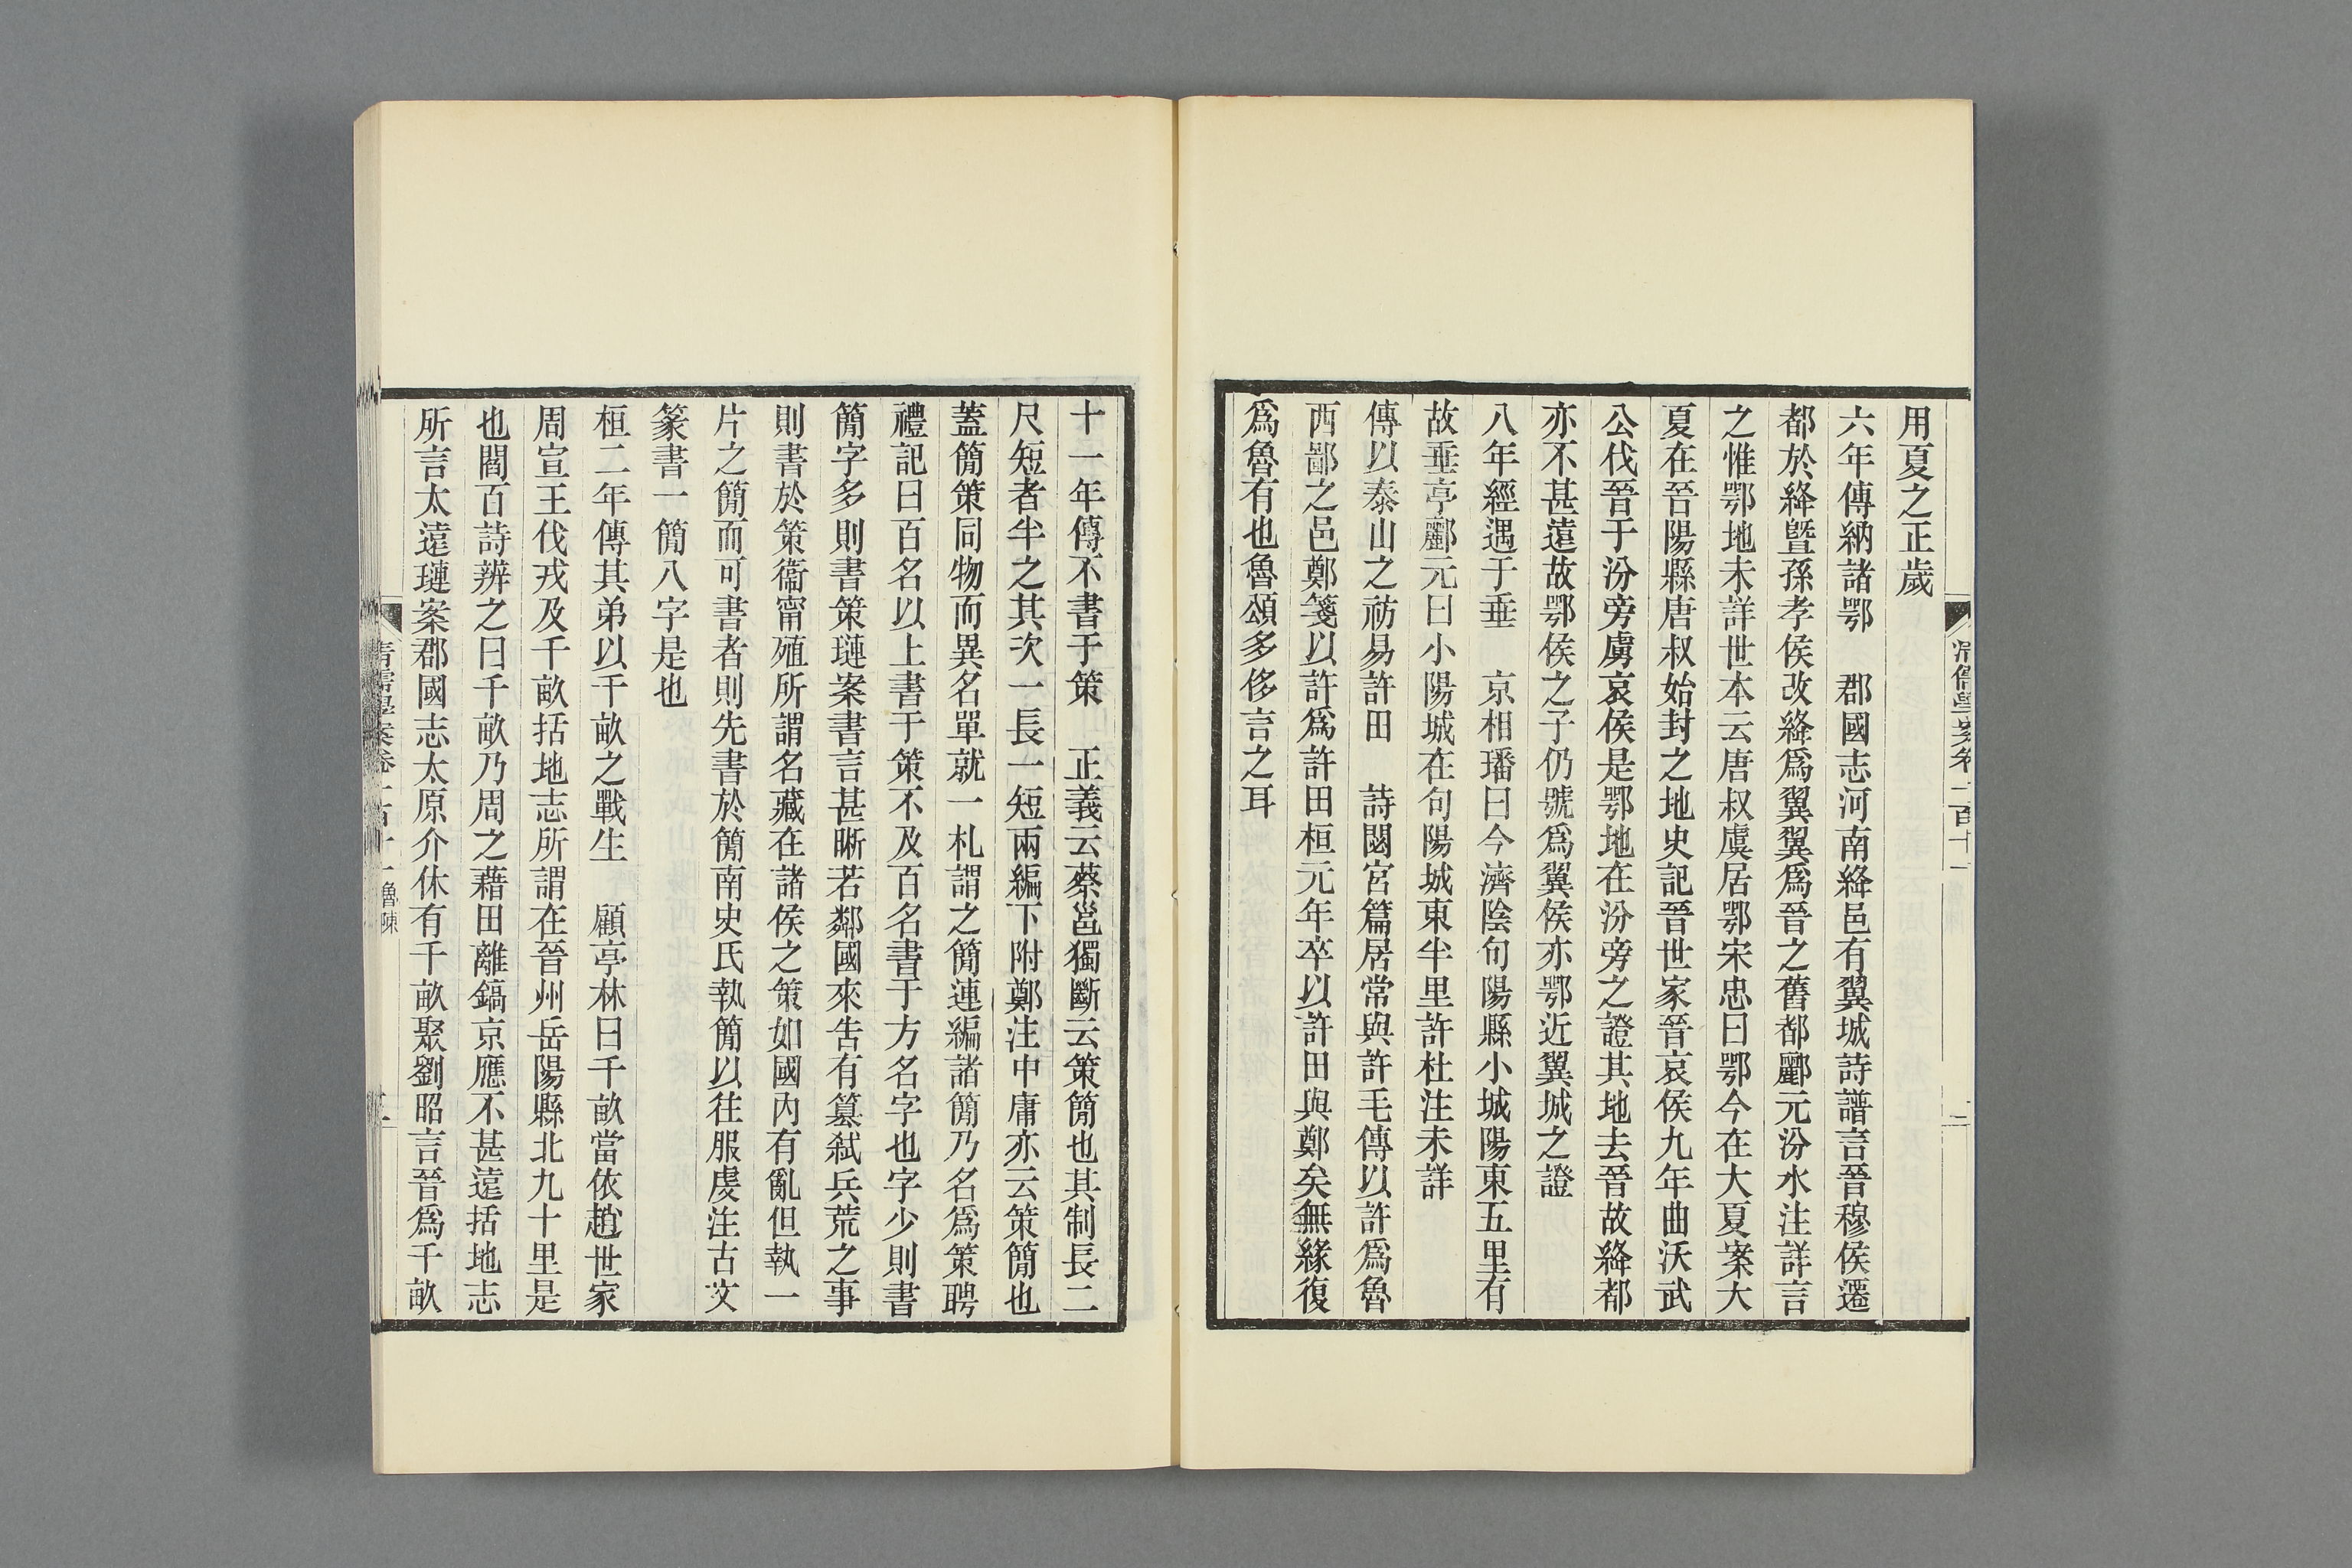 用夏之正歲
六年傳納諸鄂　郡國志河南絳邑有翼城詩譜言晉穆侯遷
都於絳暨孫孝侯改絳爲翼翼爲晉之舊都酈元汾水注詳言
之惟鄂地未詳世本云唐叔虞居鄂宋忠曰鄂今在大夏案大
夏在晉陽縣唐叔始封之地史記晉世家晉哀侯九年曲沃武
公伐晉于汾旁虜哀侯是鄂地在汾旁之證其地去晉故絳都
亦不甚遠故鄂侯之子仍號爲翼侯亦鄂近翼城之證
八年經遇于垂　京相璠曰今濟陰句陽縣小城陽東五里有
故垂亭酈元曰小陽城在句陽城東半里許杜注未詳
傳以泰山之祊易許田　詩閟宮篇居常與許毛傳以許爲魯
西鄙之邑鄭箋以許爲許田桓元年卒以許田與鄭矣無緣復
爲魯有也魯頌多侈言之耳
十一年傳不書于策　正義云蔡邕獨斷云策簡也其制長二
尺短者半之其次一長一短兩編下附鄭注中庸亦云策簡也
蓋簡策同物而異名單就一札謂之簡連編諸簡乃名爲策聘
禮記曰百名以上書于策不及百名書于方名字也字少則書
簡字多則書策璉案書言甚晰若鄰國來告有篡弒兵荒之事
則書於策衞甯殖所謂名藏在諸侯之策如國內有亂但執一
片之簡而可書者則先書於簡南史氏執簡以往服虔注古文
篆書一簡八字是也
桓二年傳其弟以千畝之戰生　顧亭林曰千畝當依趙世家
周宣王伐戎及千畝括地志所謂在晉州岳陽縣北九十里是
也閻百詩辨之曰千畝乃周之藉田離鎬京應不甚遠括地志
所言太遠璉案郡國志太原介休有千畝聚劉昭言晉爲千畝
清儒學案卷二百十一 魯陳